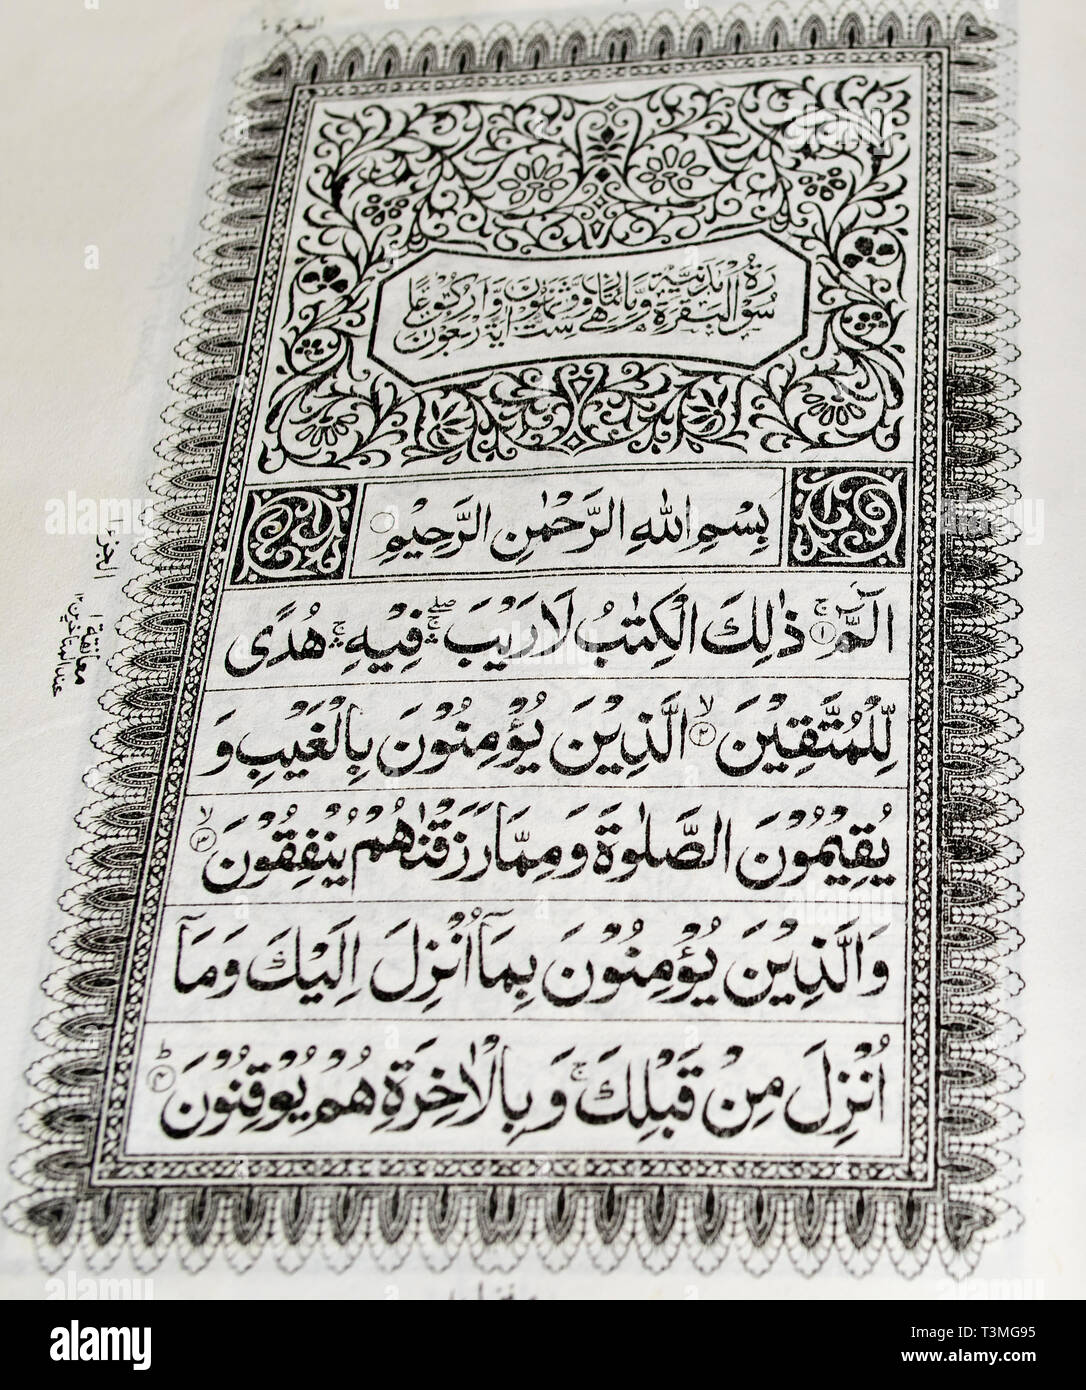 البقرة ٢
سُوْرَةُ الْبَقَرَةِ مَدَنِيَّةٌ وَهِيَ مِائَتَانِ وَسِتٌّ وَثَمَانُوْنَ اٰيَةً وَاَرْبَعُوْنَ رُكُوْعًا
بِسْمِ اللهِ الرَّحْمٰنِ الرَّحِيْمِ
الٓمّٓ ۚ﴿١﴾ ذٰلِكَ الْكِتٰبُ لَا رَيْبَ ۖۛ فِيْهِ ۚۛ هُدًى
لِّلْمُتَّقِيْنَ ۙ﴿٢﴾ الَّذِيْنَ يُؤْمِنُوْنَ بِالْغَيْبِ وَ
يُقِيْمُوْنَ الصَّلٰوةَ وَمِمَّا رَزَقْنٰهُمْ يُنْفِقُوْنَ ۙ﴿٣﴾
وَالَّذِيْنَ يُؤْمِنُوْنَ بِمَآ اُنْزِلَ اِلَيْكَ وَمَآ
اُنْزِلَ مِنْ قَبْلِكَ ۚ وَبِالْاٰخِرَةِ هُمْ يُوْقِنُوْنَ ؕ﴿٤﴾
الجزء ١
معانقة ١
alamy
Image ID: T3MG95
www.alamy.com